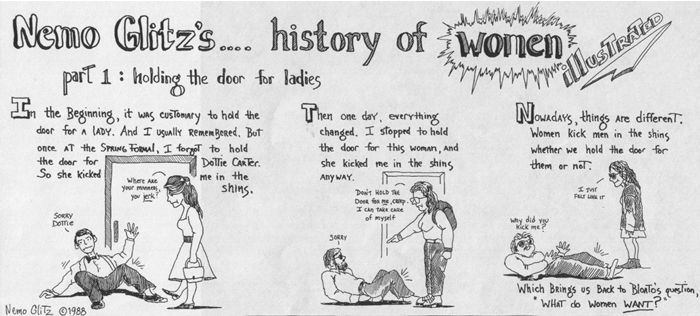 Nemo Glitz's.... history of women illUSTRATED
part 1: holding the door for ladies
In the Beginning, it was customary to hold the
door for a LADY. And I usually Remembered. But
once at the SPRING FORMAL, I forgot to hold
the door for Dottie Carter.
So she kicked me in the
shins.
Where are
your manners,
you jerk?
SORRY
DOTTIE
Then one day, everything
changed. I stopped to hold
the door for this woman, and
she kicked me in the shins
ANYWAY.
DON'T HOLD THE
DOOR FOR ME, CREEP.
I CAN TAKE CARE
of myself
SORRY
Nowadays, things are different.
Women kick men in the shins
whether we hold the door for
them or not.
I JUST
FELT LIKE IT
Why did you
kick me?
Which Brings us Back to Bloato's question,
"WHAT do Women WANT?"
Nemo Glitz ©1988